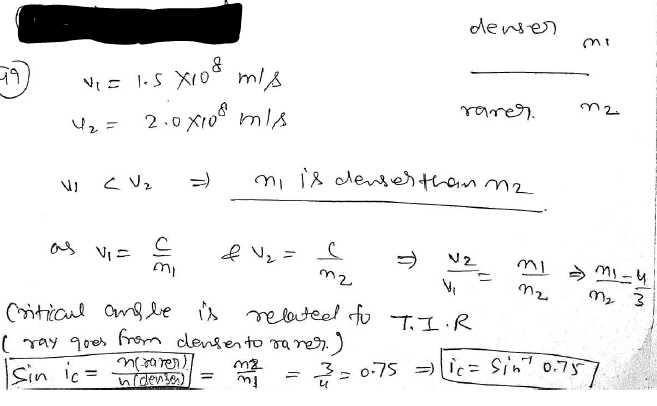 denser n1
49) v1 = 1.5 × 10^8 m/s
v2 = 2.0 × 10^8 m/s
rarer. n2
v1 < v2 ⇒ n1 is denser than n2
as v1 = c/n1 & v2 = c/n2 ⇒ v2/v1 = n1/n2 ⇒ n1/n2 = 4/3
Critical angle is related to T.I.R
( ray goes from denser to rarer.)
Sin ic = n(rarer)/n(denser) = n2/n1 = 3/4 = 0.75 ⇒ ic = Sin⁻¹ 0.75